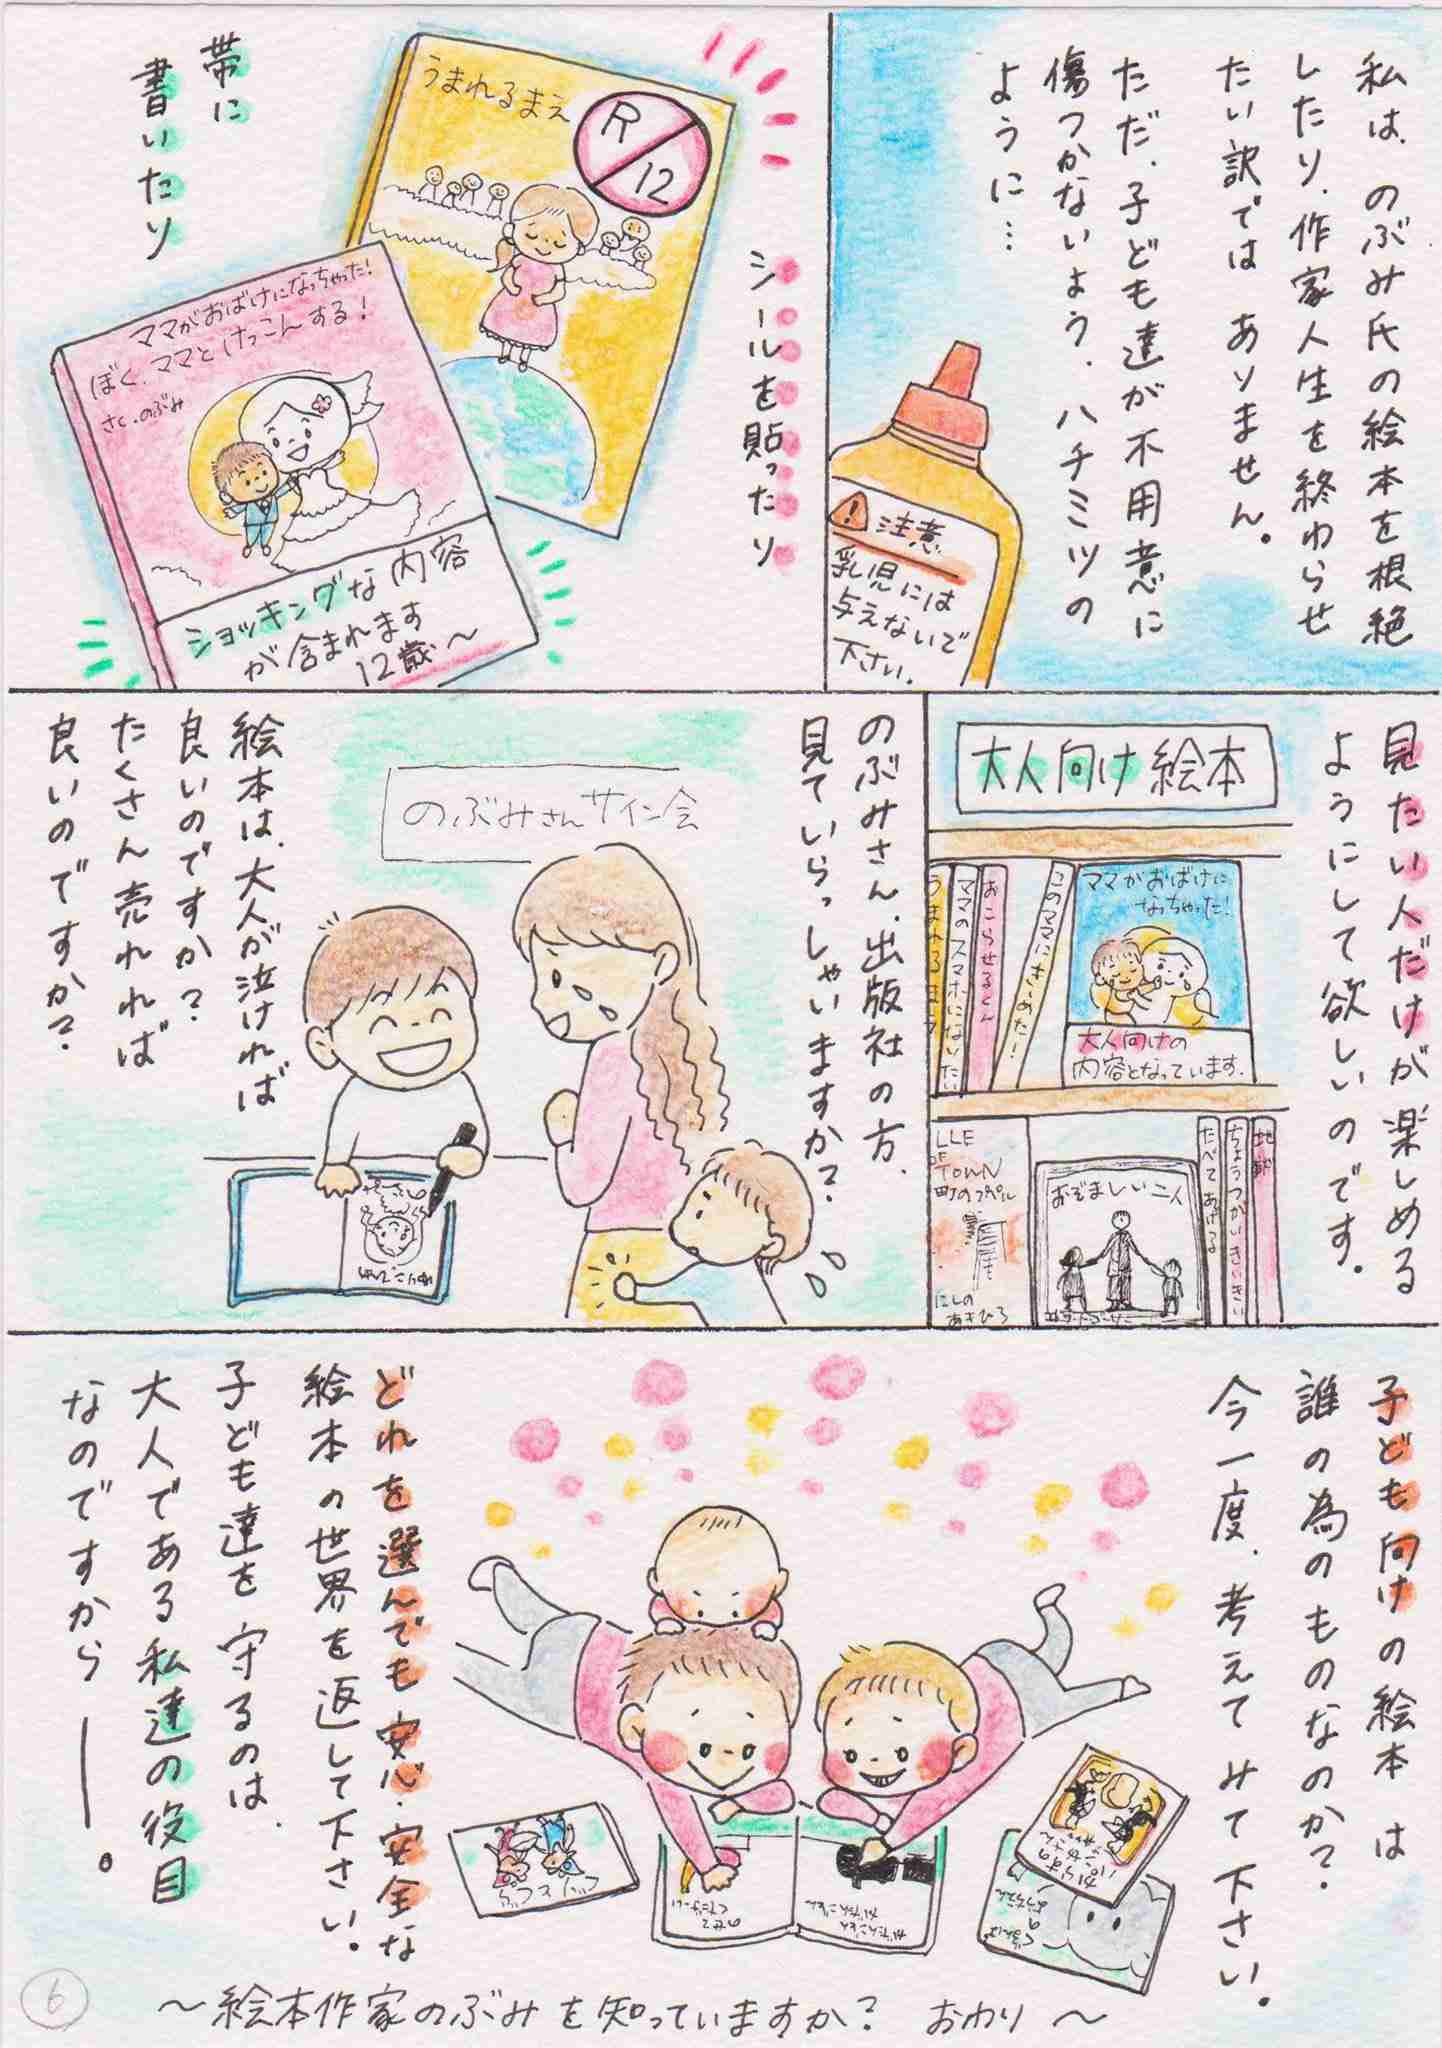 私は、のぶみ氏の絵本を根絶
したり、作家人生を終わらせ
たい訳では ありません。
ただ、子ども達が不用意に
傷つかないよう、ハチミツの
ように…
注意
乳児には
与えないで
下さい。
シールを貼ったり
うまれるまえ
R/12
帯に
書いたり
ママがおばけになっちゃった!
ぼく、ママとけっこんする!
さく.のぶみ
ショッキングな内容
が含まれます
12歳〜
見たい人だけが楽しめる
ようにして欲しいのです。
大人向け絵本
ママのスマホになりたい
おこらせるくん
このママにきーめた!
ママがおばけに
なっちゃった!
大人向けの
内容となっています.
TOWN
町のプペル
にしの
あきひろ
おぞましい二人
たべてあげる
ちょうつがい きいきい
地獄
のぶみさん、出版社の方、
見ていらっしゃいますか?
のぶみさんサイン会
絵本は、大人が泣ければ
良いのですか?
たくさん売れれば
良いのですか?
子ども向けの絵本 は
誰の為のものなのか?
今一度、考えてみて下さい。
どれを選んでも安心・安全な
絵本の世界を返して下さい。
子ども達を 守るのは、
大人である私達の役目
なのですから――。
のせて
くださーい
がたんごとん
がたんごとん
からすの
パンやさん
ぐるんぱ
の
ようちえん
〜絵本作家のぶみを知っていますか? おわり 〜
6